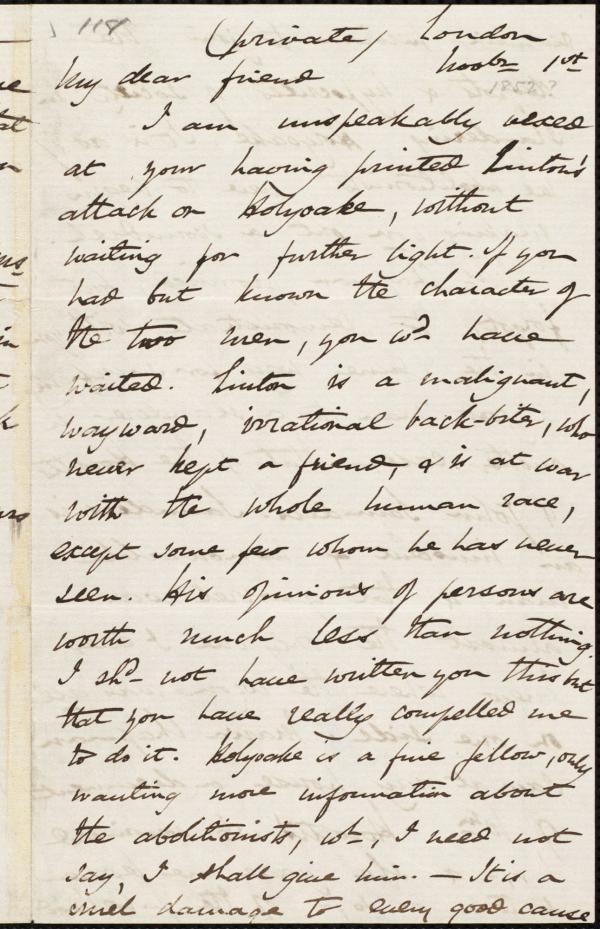 118
(private) London
My dear friend Novbr 1st
1853?
I am unspeakably vexed
at your having printed Linton's
attack on Holyoake, without
waiting for further light. If you
had but known the character of
the two men, you wd have
waited. Linton is a malignant,
wayward, irrational back-biter, who
never kept a friend, & is at war
with the whole human race,
except some few whom he has never
seen. His opinions of persons are
worth much less than nothing.
I shd not have written you this but
that you have really compelled me
to do it. Holyoake is a fine fellow, only
wanting more information about
the abolitionists, wh, I need not
say, I shall give him. — It is a
cruel damage to every good cause